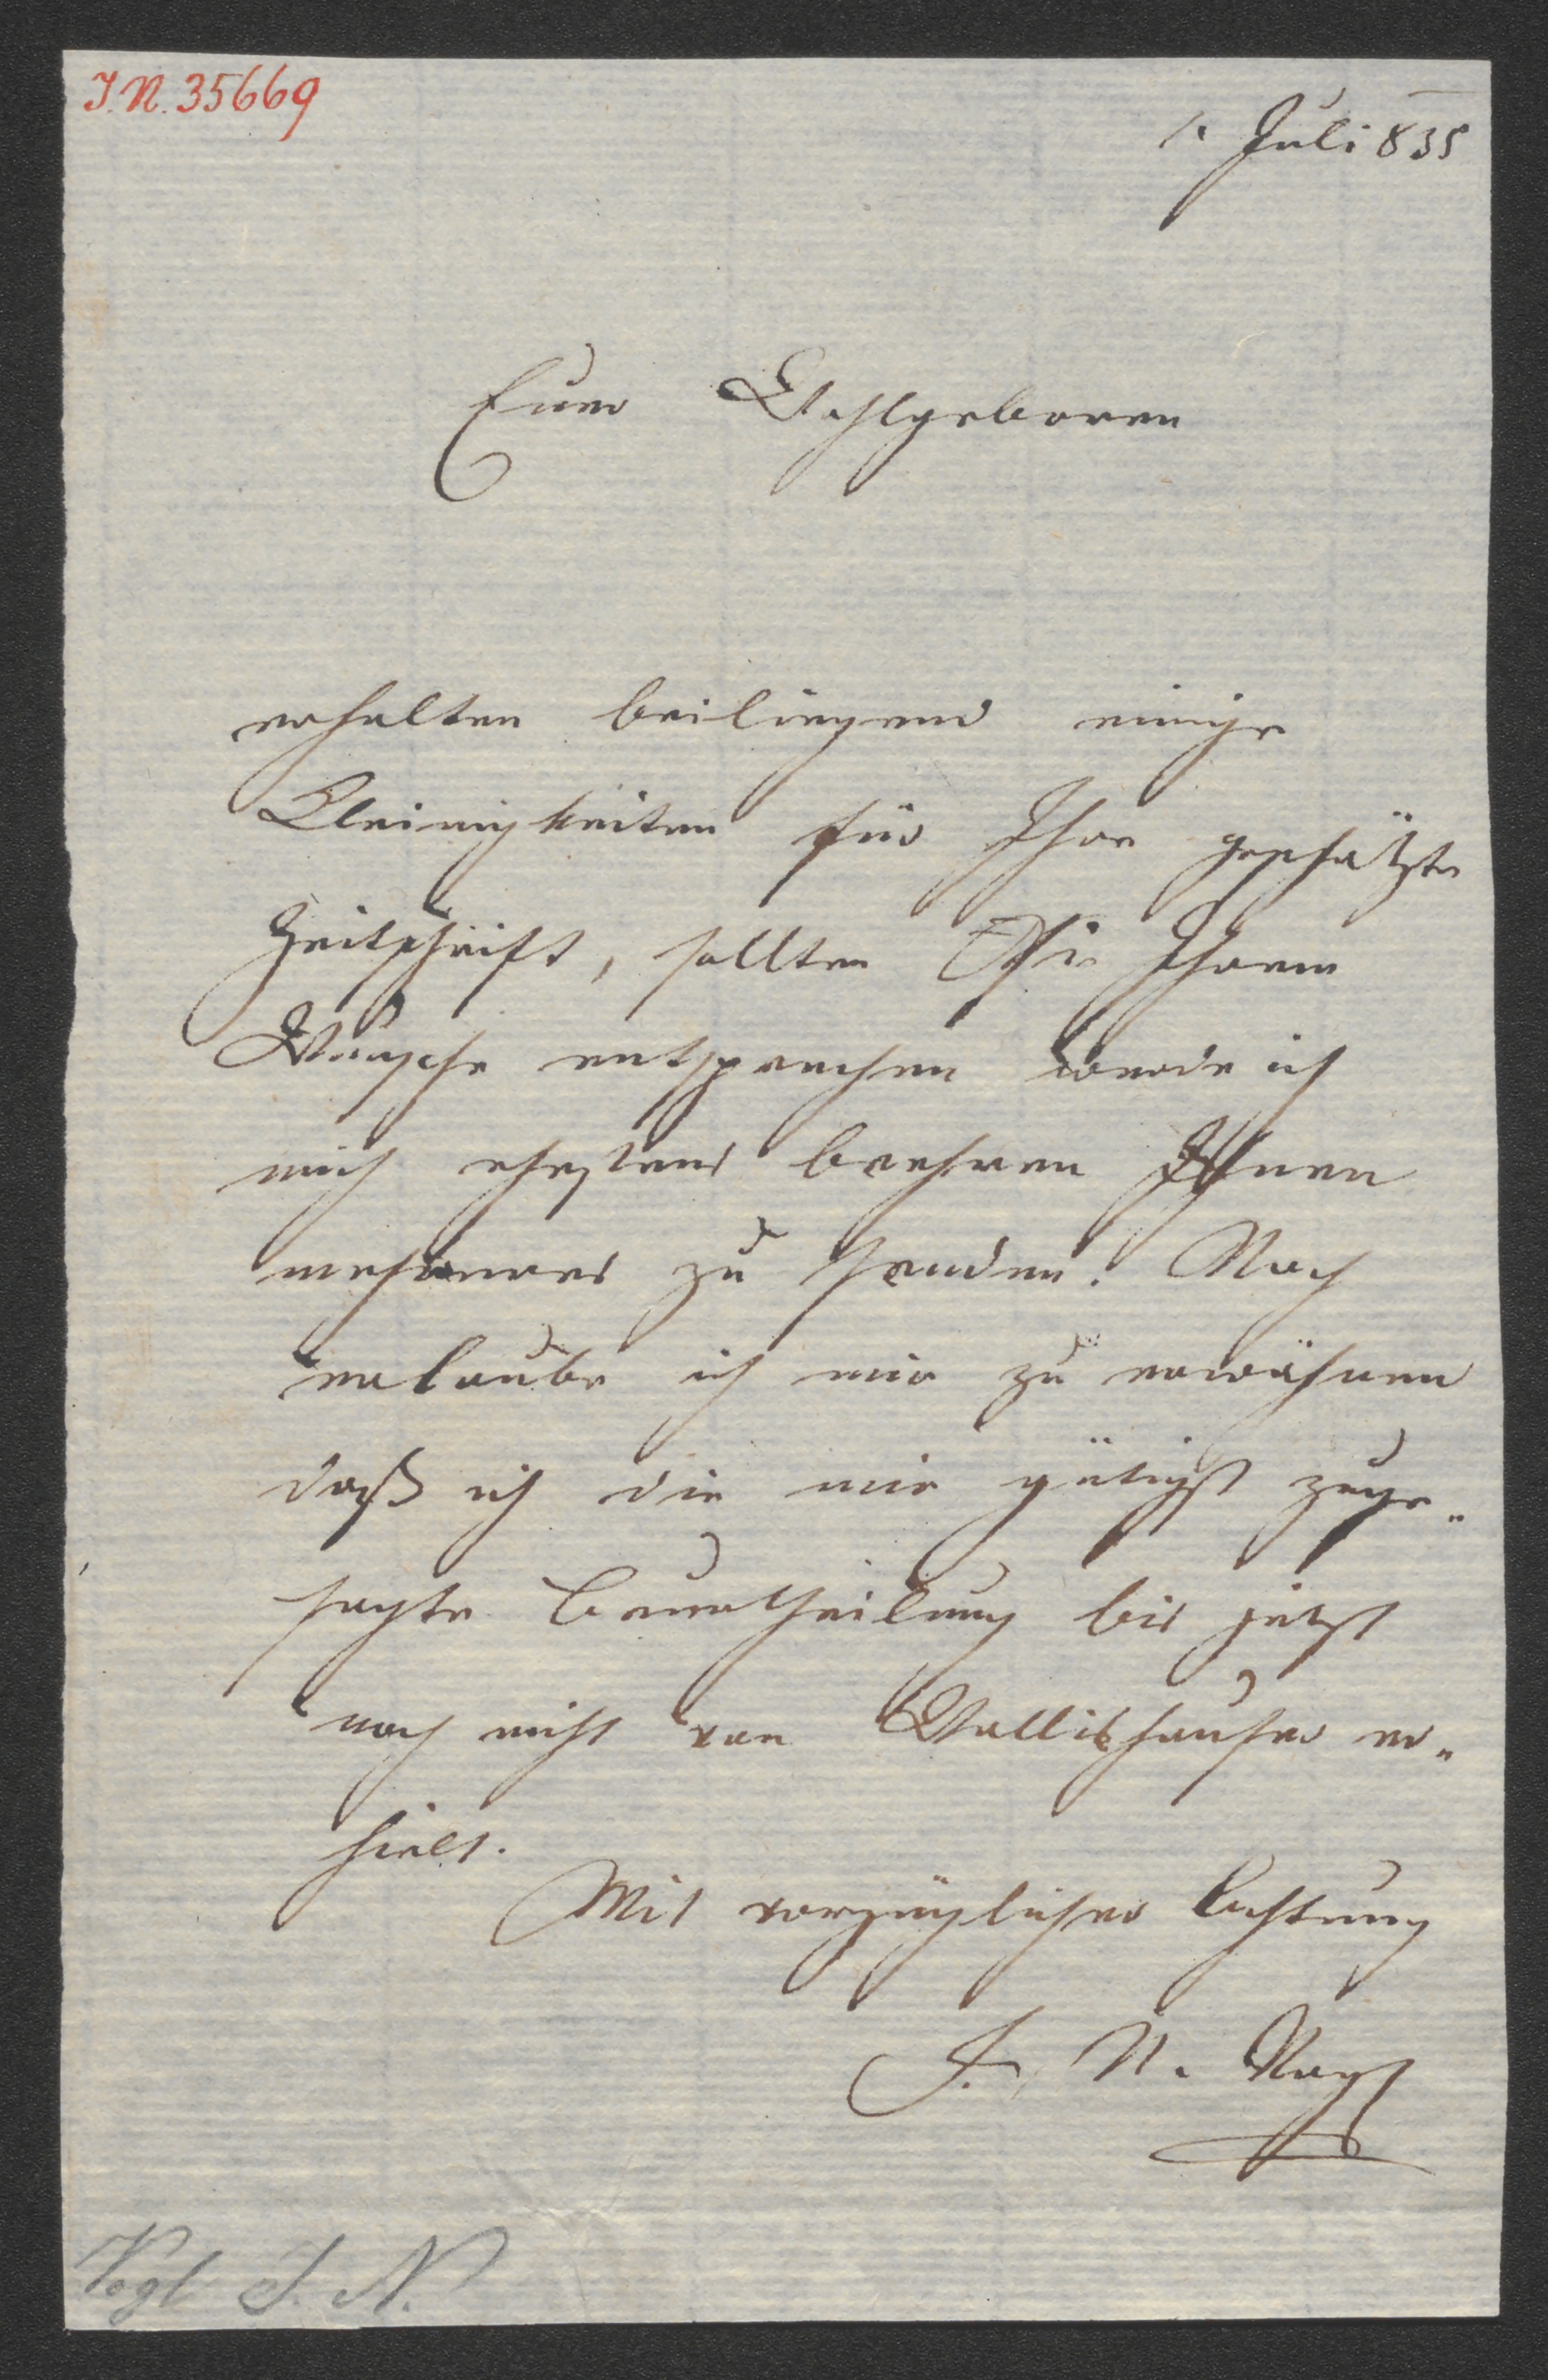 I.N. 35669
1. Juli 835
Euer Wohlgeboren
erhalten beiliegend einige
Kleinigkeiten für Ihre geschätzte
Zeitschrift, sollten Sie Ihrem
Wunsche entsprechen werde ich
mich ehestens beehren Ihnen
mehreres zu senden. Noch
erlaube ich mir zu erwähnen
daß ich die mir gütigst zuge„
sagte Beurtheilung bis jetzt
noch nicht von Wallishauser er„
hielt.
Mit vorzüglicher Achtung
J. N. Vogl
Vogl J. N.